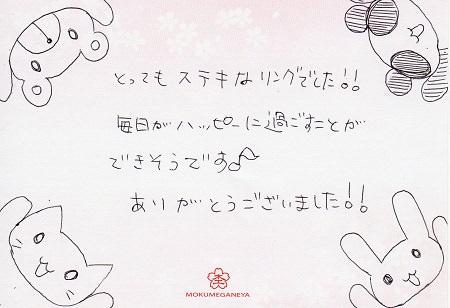 とっても ステキな リングでした!!
毎日が ハッピーに 過ごすことが
できそうです♪
ありがとうございました!!
MOKUMEGANEYA